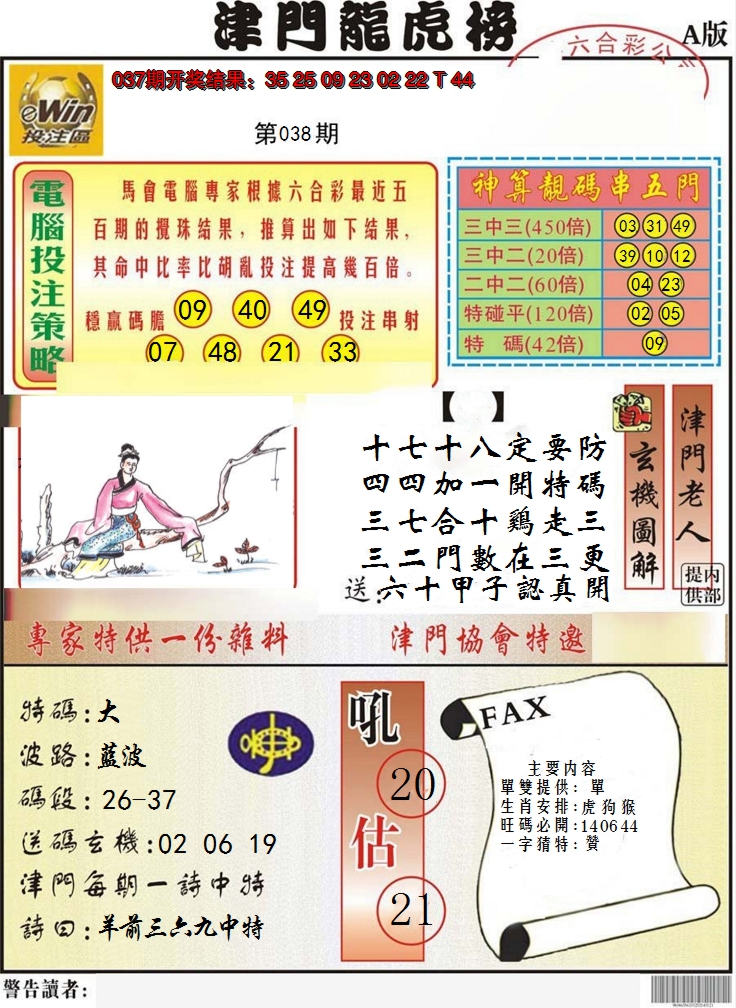 津門龍虎榜
六合彩公
A版
037期开奖结果：35 25 09 23 02 22 T 44
eWin
投注區
第038期
電腦投注策略
馬會電腦專家根據六合彩最近五
百期的攪珠结果，推算出如下结果，
其命中比率比胡亂投注提高幾百倍。
穩赢碼膽 09 40 49 投注串射
07 48 21 33
神算靚碼串五門
三中三(450倍) 03 31 49
三中二(20倍) 39 10 12
二中二(60倍) 04 23
特碰平(120倍) 02 05
特 碼(42倍) 09
【 】
十七十八定要防
四四加一開特碼
三七合十鷄走三
三二門數在三更
送:六十甲子認真開
玄機圖解
津門老人
内部提供
專家特供一份雜料
津門協會特邀
特碼:大
波路:藍波
碼段:26-37
送碼玄機:02 06 19
津門每期一詩中特
詩曰:羊前三六九中特
吼
20
估
21
FAX
主要内容
單雙提供：單
生肖安排:虎狗猴
旺碼必開:140644
一字猜特：贊
警告讀者：